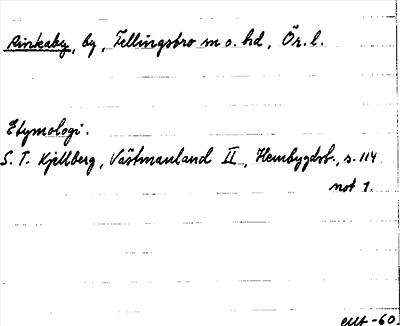 Rinkaby, by, Fellingsbro m o. hd, Ör. l.
Etymologi.
S. T. Kjellberg, Västmanland II, Hembygdsb., s. 114
not 1.
-60.